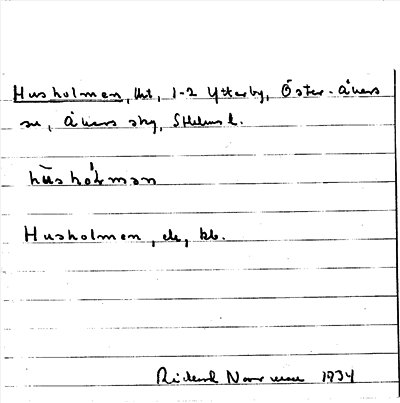 Husholmen, 1-2 Ytterby, Öster-Åkers
sn, Åkers skg, Sthlms l.
hùshòłmən
Husholmen, ek, kb.
Rickard Norrman 1934